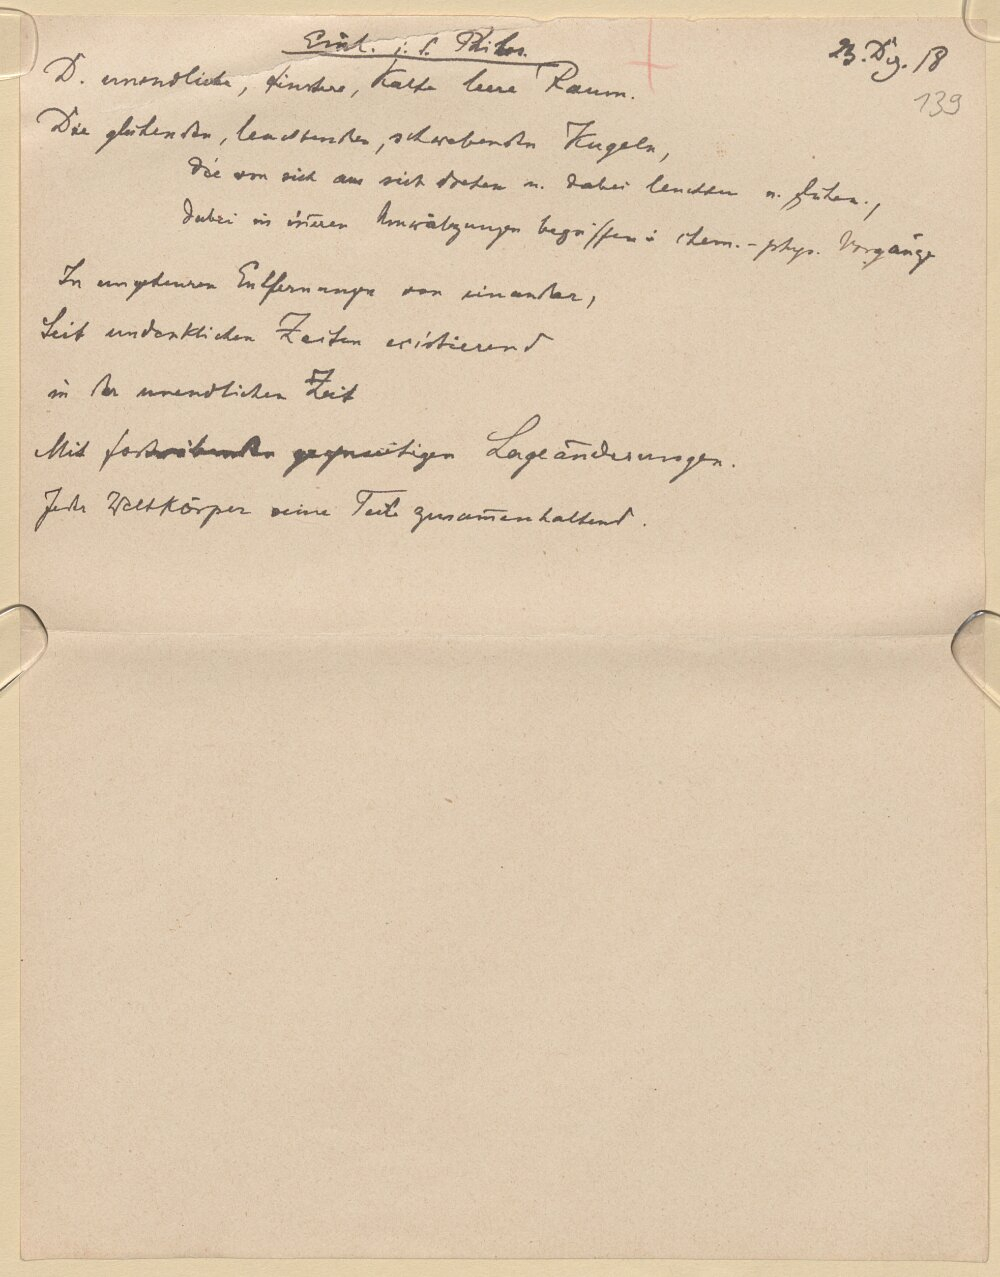 Einl. i. d. Philos.
23. Dez. 18
139
D. unendliche, finstere, kalte leere Raum.
Die glühenden, leuchtenden, schwebenden Kugeln,
die von sich aus sich drehen u. dabei leuchten u. glühen.,
dabei in inneren Umwälzungen begriffen: chem.-phys. Vorgänge
In ungeheuren Entfernungen von einander,
Seit undenklichen Zeiten existierend
in der unendlichen Zeit
Mit fortwährenden gegenseitigen Lageänderungen.
Jeder Weltkörper seine Teile zusammenhaltend.